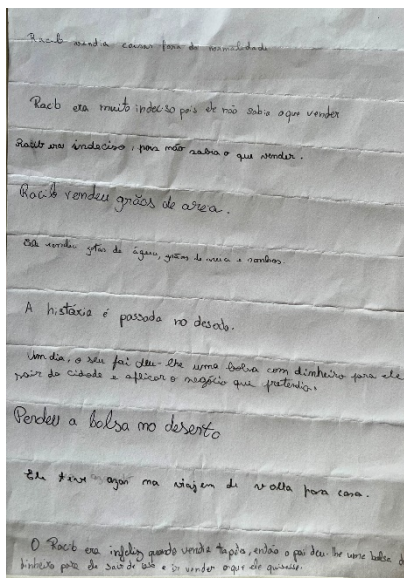 Racib vendia coisas fora da normalidade
Racib era muito indeciso pois ele não sabia o que vender
Racib era indeciso, pois não sabia o que vender.
Racib vendeu grãos de area.
Ele vendeu gotas de água, grãos de areia e sonhos.
A histáxia é passada no deserto.
Um dia, o seu pai deu-lhe uma bolsa com dinheiro para ele
sair da cidade e aplicar o negócio que pretendia.
Perdeu a bolsa no deserto
Ele teve azar na viajem de volta para casa.
O Racib era infeliz quando vendia, então o pai deu-lhe uma bolsa d
dinheiro para ele sair de e ir vender o que ele quisesse.